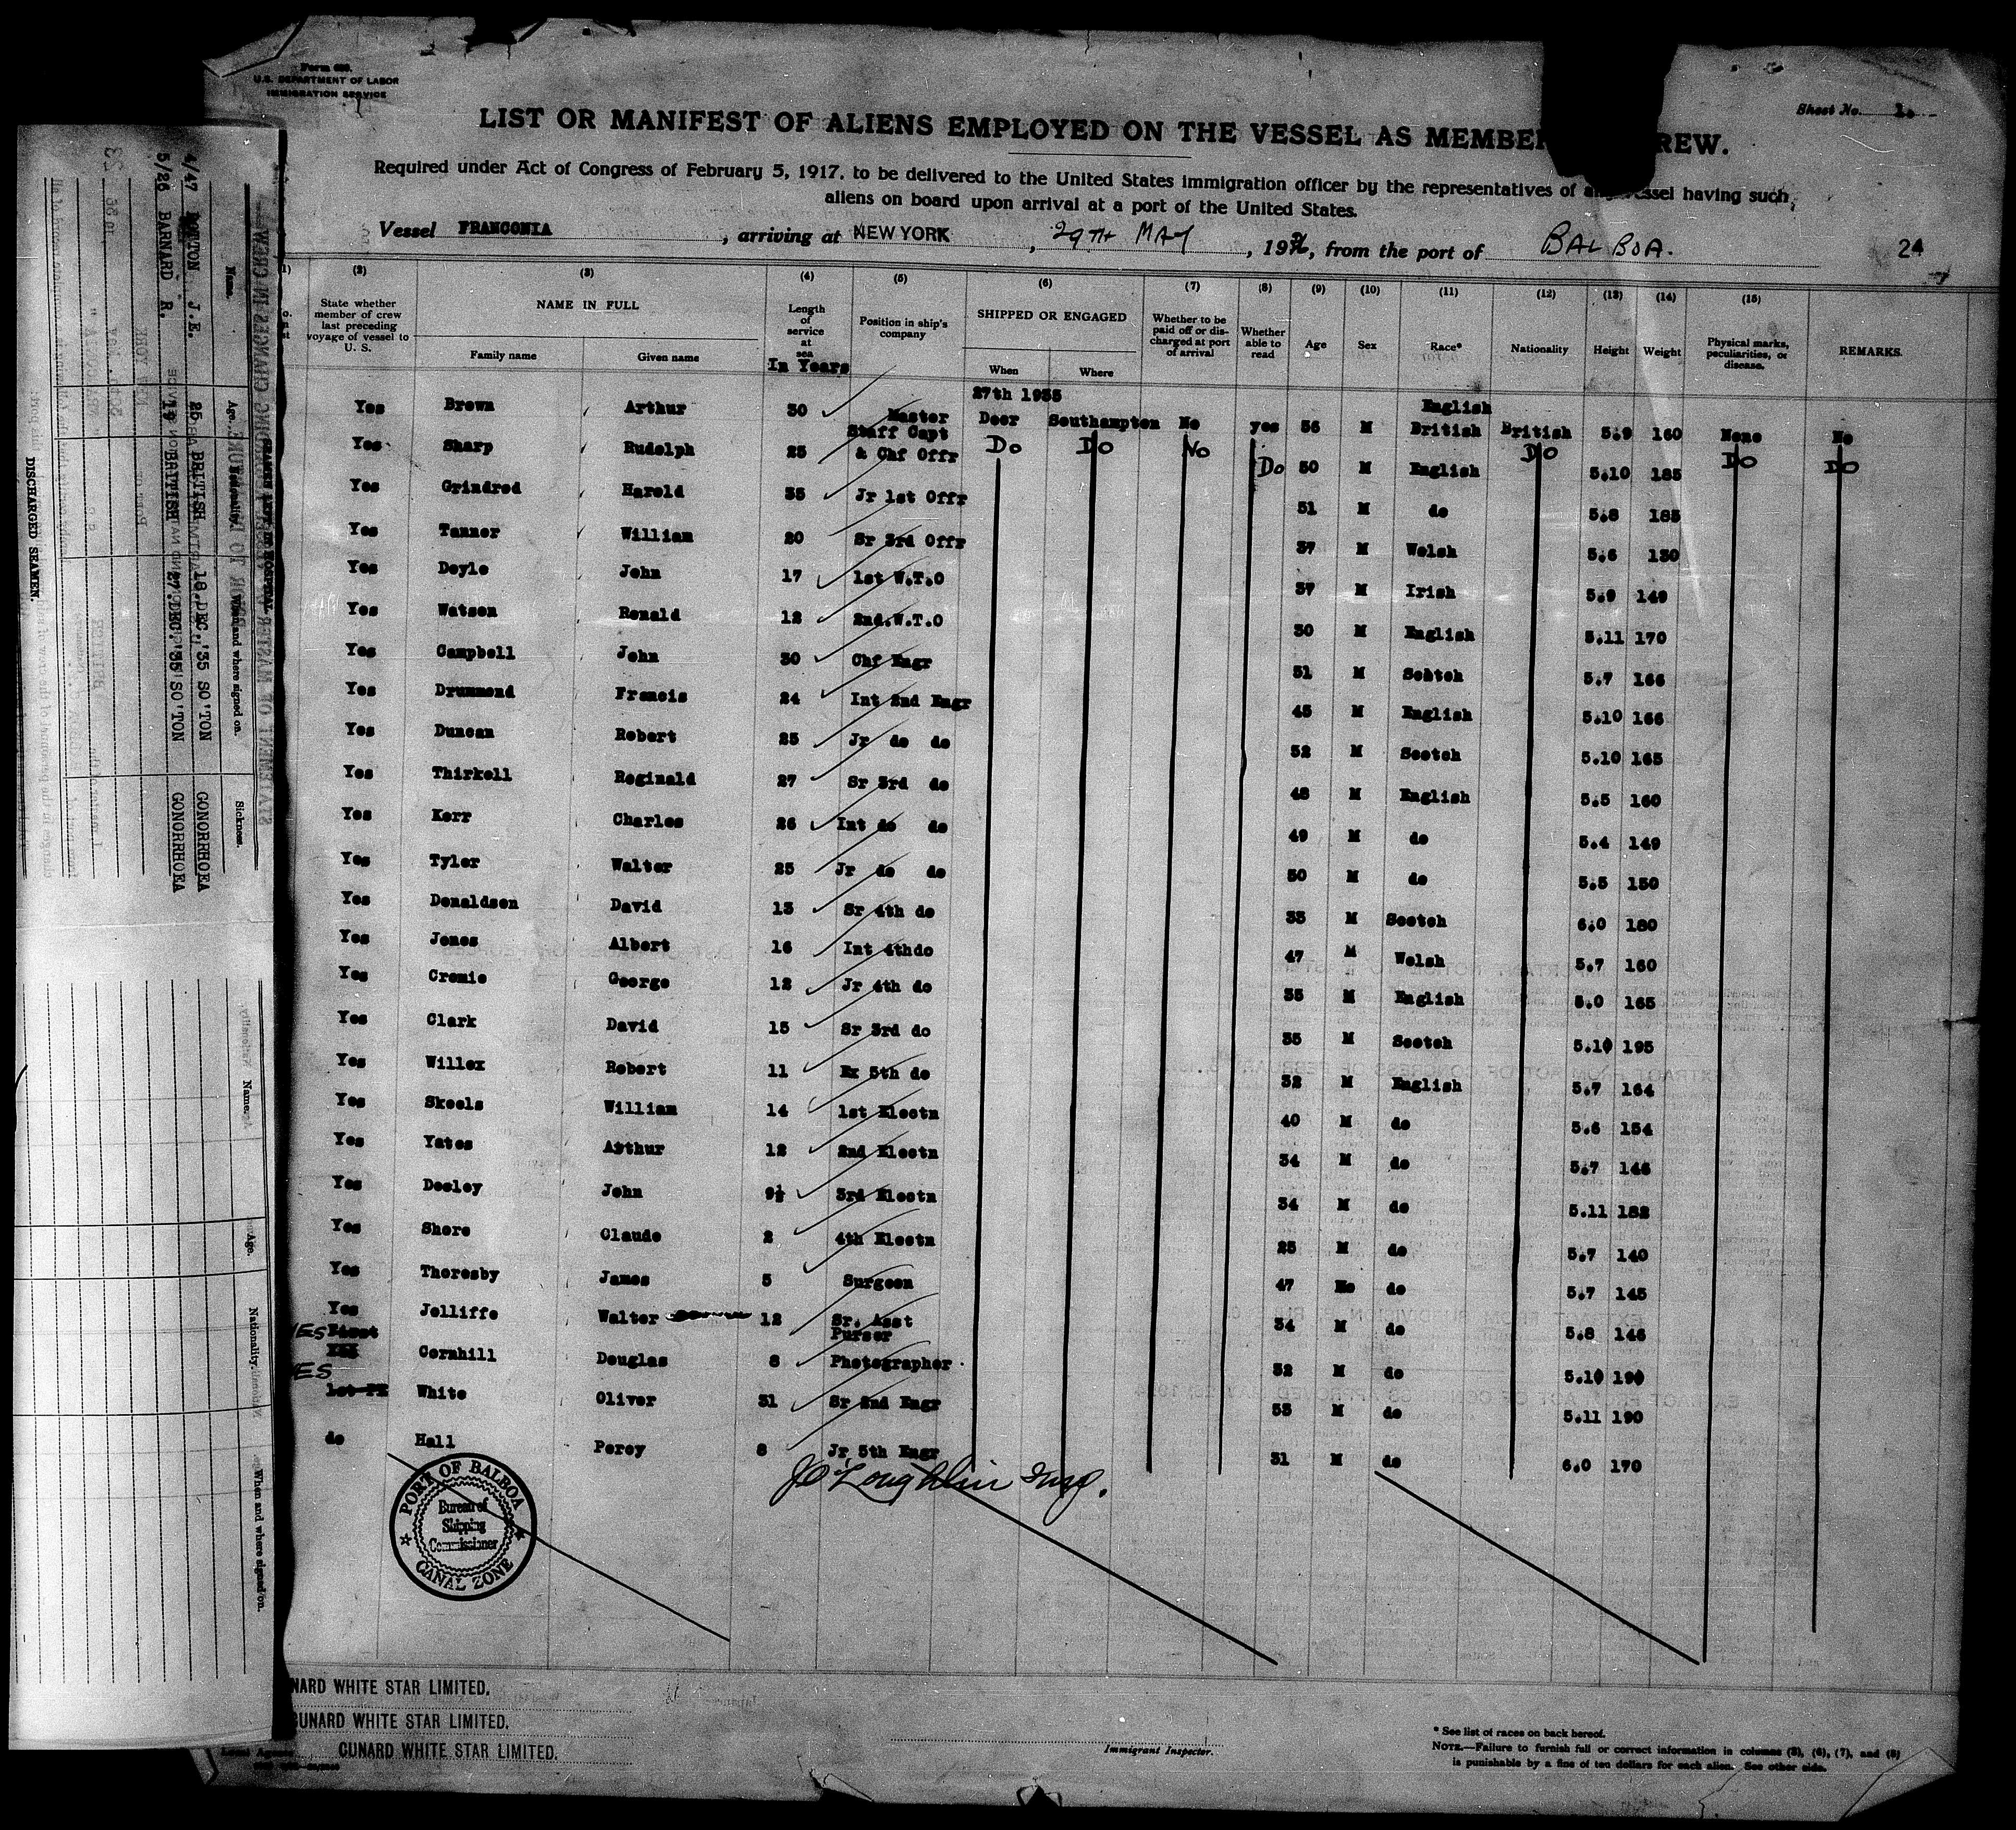 Form 689.
U.S. DEPARTMENT OF LABOR
IMMIGRATION SERVICE
Sheet No. 1.
LIST OR MANIFEST OF ALIENS EMPLOYED ON THE VESSEL AS MEMBER REW.
Required under Act of Congress of February 5, 1917, to be delivered to the United States immigration officer by the representatives of any vessel having such
aliens on board upon arrival at a port of the United States.
Vessel FRANCONIA, arriving at NEW YORK, 29TH MAY, 1936, from the port of BALBOA.
24
(1) (2) (3) (4) (5) (6) (7) (8) (9) (10) (11) (12) (13) (14) (15)
State whether member of crew last preceding voyage of vessel to U. S. NAME IN FULL Family name Given name Length of service at sea In Years Position in ship's company SHIPPED OR ENGAGED When Where Whether to be paid off or discharged at port of arrival Whether able to read Age Sex Race* Nationality Height Weight Physical marks, peculiarities, or disease. REMARKS.
27th 1935 English
Yes Brown Arthur 30 Master Decr Southampton No yes 56 M British British 5.9 160 None No
Yes Sharp Rudolph 25 Staff Capt & Chf Offr Do Do No Do 50 M English Do 5.10 185 Do Do
Yes Grindred Harold 35 Jr 1st Offr 51 M do 5.8 185
Yes Tanner William 20 Sr 3rd Offr 37 M Welsh 5.6 130
Yes Doyle John 17 1st W.T.O 37 M Irish 5.9 149
Yes Watson Ronald 12 2nd.W.T.O 30 M English 5.11 170
Yes Campbell John 30 Chf Engr 51 M Scotch 5.7 166
Yes Drummond Francis 24 Int 2nd Engr 45 M English 5.10 166
Yes Duncan Robert 25 Jr do do 52 M Scotch 5.10 165
Yes Thirkell Reginald 27 Sr 3rd do 48 M English 5.5 160
Yes Kerr Charles 26 Int do do 49 M do 5.4 149
Yes Tyler Walter 25 Jr do do 50 M do 5.5 150
Yes Donaldson David 13 Sr 4th do 33 M Scotch 6.0 180
Yes Jones Albert 16 Int 4thdo 47 M Welsh 5.7 160
Yes Cromie George 12 Jr 4th do 35 M English 5.0 165
Yes Clark David 15 Sr 3rd do 35 M Scotch 5.10 195
Yes Willox Robert 11 Ex 5th do 32 M English 5.7 164
Yes Skeels William 14 1st Electn 40 M do 5.6 154
Yes Yates Arthur 12 2nd Electn 34 M do 5.7 146
Yes Dooley John 9½ 3rd Electn 34 M do 5.11 182
Yes Shore Claude 2 4th Electn 25 M do 5.7 140
Yes Thoresby James 5 Surgeon 47 do 5.7 145
Yes Jolliffe Walter 12 Sr. Asst Purser 34 M do 5.8 146
YES Cornhill Douglas 8 Photographer 32 M do 5.10 190
YES White Oliver 31 Sr 2nd Engr 53 M do 5.11 190
do Hall Percy 8 Jr 5th Engr 31 M do 6.0 170
J O'Loughlin Surg.
PORT OF BALBOA
Bureau of
Shipping
Commissioner
CANAL ZONE
NARD WHITE STAR LIMITED.
CUNARD WHITE STAR LIMITED.
CUNARD WHITE STAR LIMITED.
Immigrant Inspector.
* See list of races on back hereof.
NOTE.—Failure to furnish full or correct information in columns (3), (6), (7), and (8)
is punishable by a fine of ten dollars for each alien. See other side.
Name. Age. Nationality. When and where signed on. Sickness.
4/47 J.E. 25 BRITISH 18 DEC.'35 SO'TON GONORRHOEA
5/26 BARNARD R. 19 BRITISH 27.DEC.'35 SO'TON GONORRHOEA
DISCHARGED SEAMEN.
Name. Age. Nationality. When and where signed on.